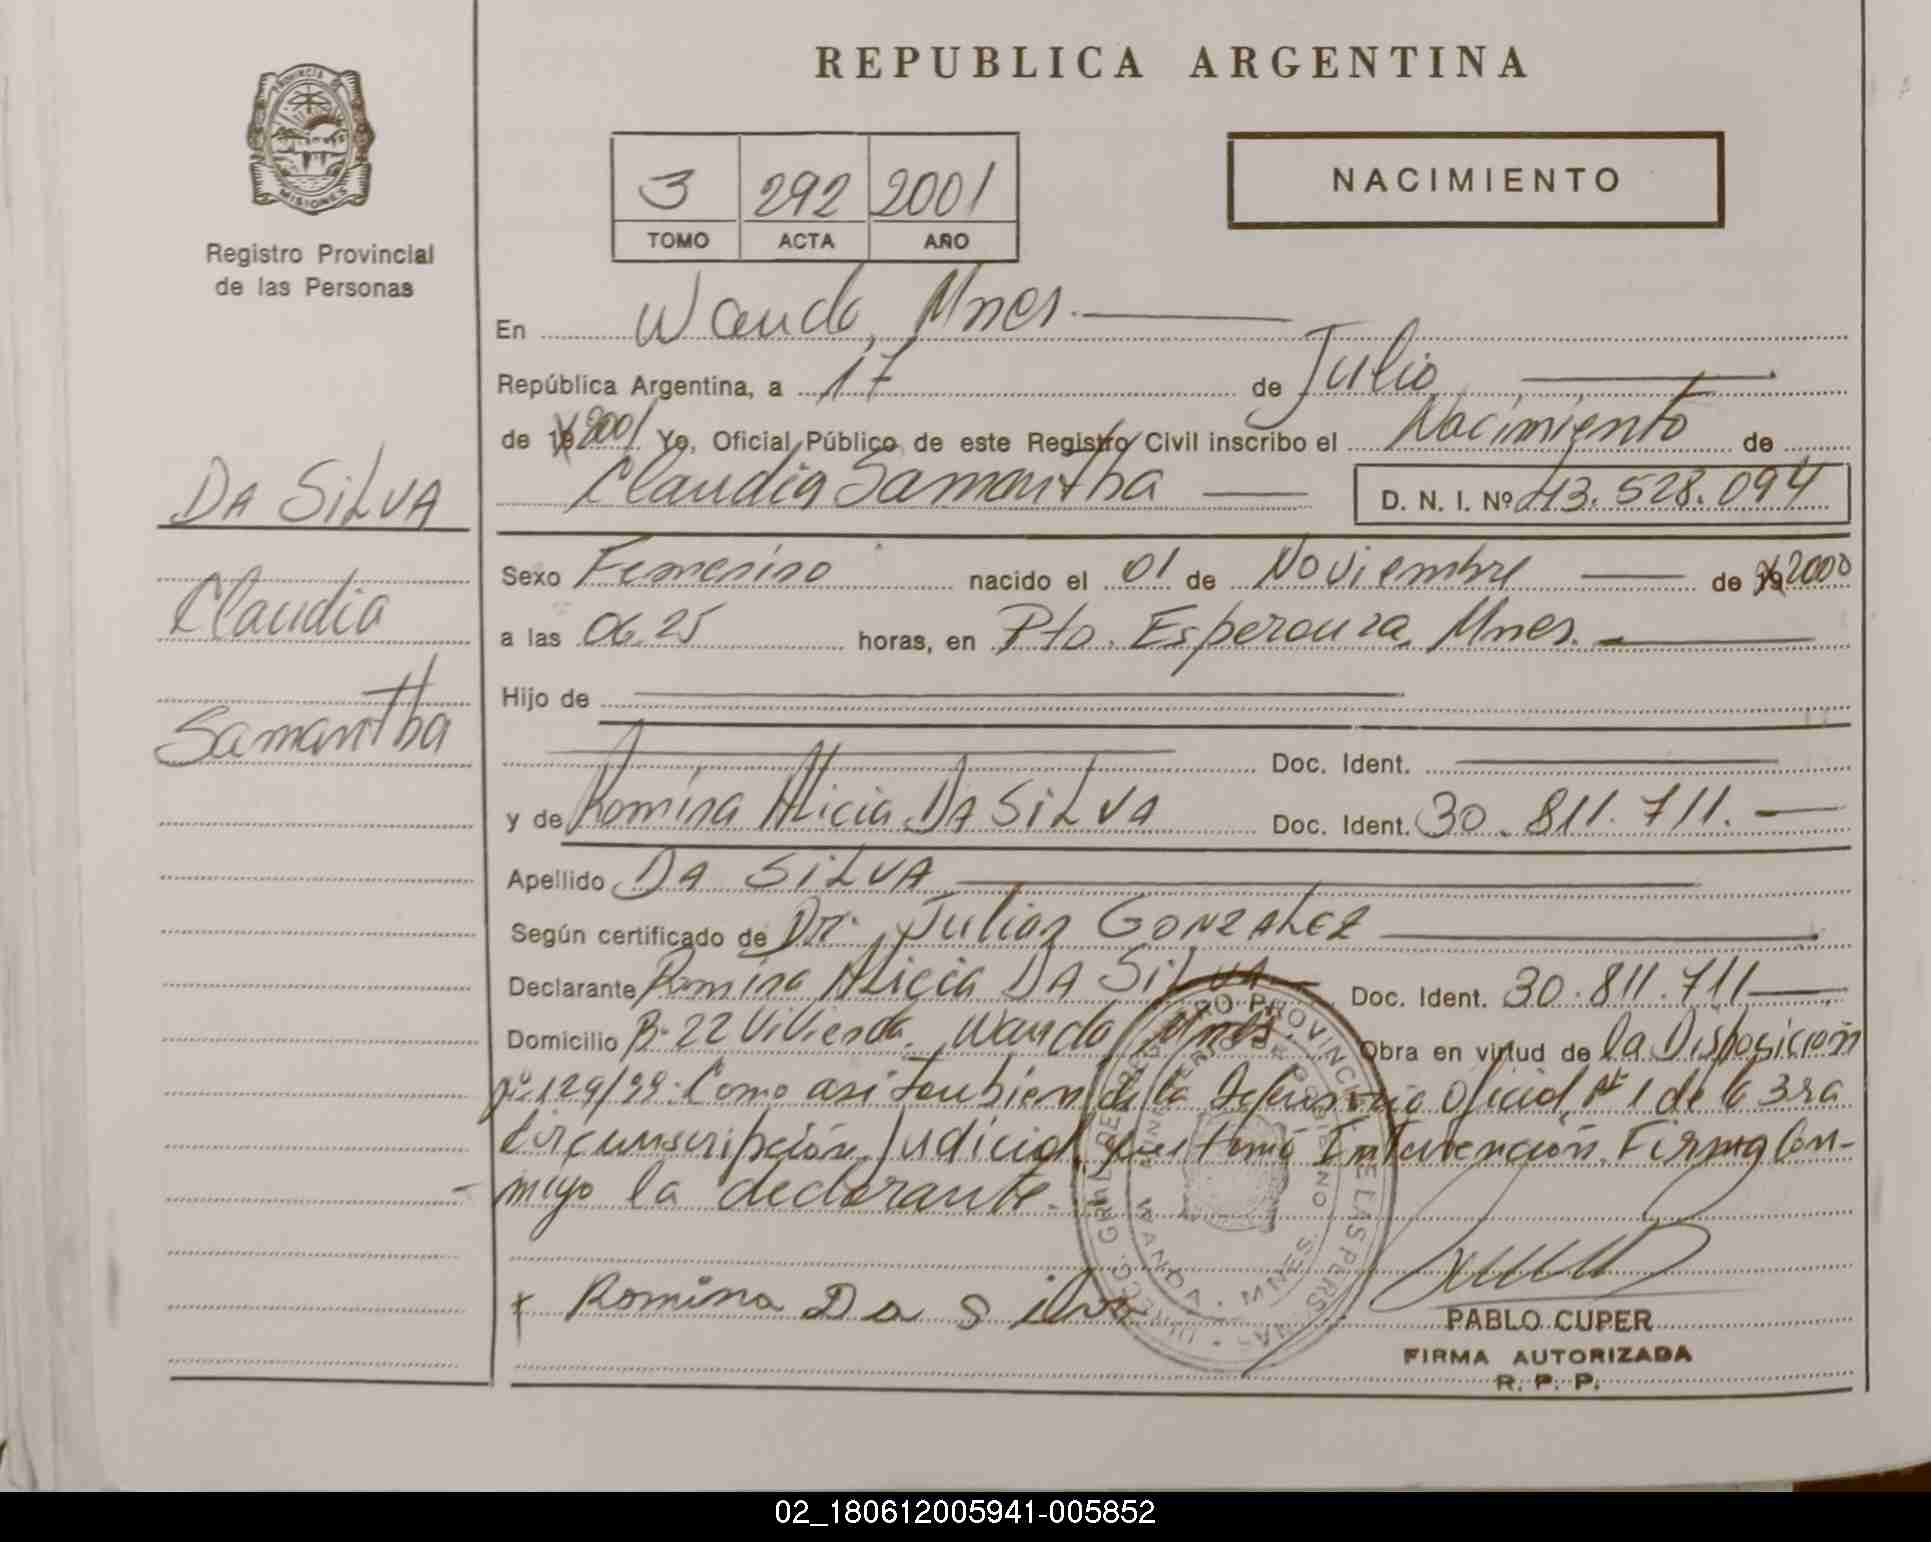 REPUBLICA ARGENTINA
PROVINCIA DE MISIONES
Registro Provincial
de las Personas
3 292 2001
TOMO ACTA AÑO
NACIMIENTO
En Wanda, Mnes.
República Argentina, a 17 de Julio
de 19 2001 Yo, Oficial Público de este Registro Civil inscribo el Nacimiento de
Claudia Samantha D. N. I. Nº 43.528.094
DA SILVA
Claudia
Samantha
Sexo Femenino nacido el 01 de Noviembre de 19 2000
a las 06,25 horas, en Pto. Esperanza, Mnes.
Hijo de
Doc. Ident.
y de Romina Alicia DA SILVA Doc. Ident. 30.811.711.
Apellido DA SILVA
Según certificado de Dr. Julian GONZALEZ
Declarante Romina Alicia DA SILVA Doc. Ident. 30.811.711
Domicilio Bº 22 Vivienda. Wanda Mnes. Obra en virtud de la Disposición
nº 129/99. Como asi tambien de la Defensoria Oficial Nº 1 de la 3ra
Circunscripción Judicial, que tomó Intervención. Firma Con-
migo la declarante.
Romina Da Silva
DIRECC. GRAL. DEL REGISTRO PROVINCIAL DE LAS PERSONAS
MINISTERIO DE GOBIERNO
WANDA - MNES.
PABLO CUPER
FIRMA AUTORIZADA
R. P. P.
02_180612005941-005852